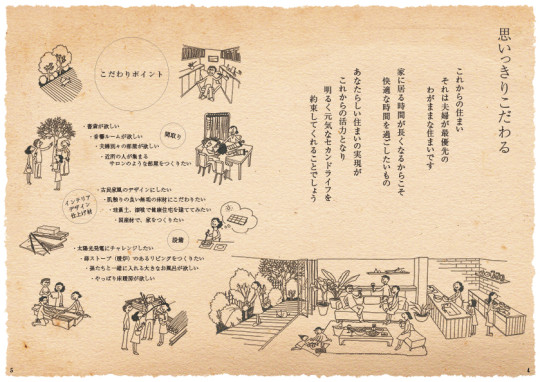 思いっきりこだわる
これからの住まい
それは夫婦が最優先の
わがままな住まいです
家に居る時間が長くなるからこそ
快適な時間を過ごしたいもの
あなたらしい住まいの実現が
これからの活力となり
明るく元気なセカンドライフを
約束してくれることでしょう
4
こだわりポイント
間取り
・書斎が欲しい
・音響ルームが欲しい
・夫婦別々の部屋が欲しい
・近所の人が集まる
サロンのような部屋をつくりたい
インテリア
デザイン
仕上げ材
・古民家風のデザインにしたい
・肌触りの良い無垢の床材にこだわりたい
・珪藻土、漆喰で健康住宅を建ててみたい
・国産材で、家をつくりたい
設備
・太陽光発電にチャレンジしたい
・薪ストーブ（暖炉）のあるリビングをつくりたい
・孫たちと一緒に入れる大きなお風呂が欲しい
・やっぱり床暖房が欲しい
5